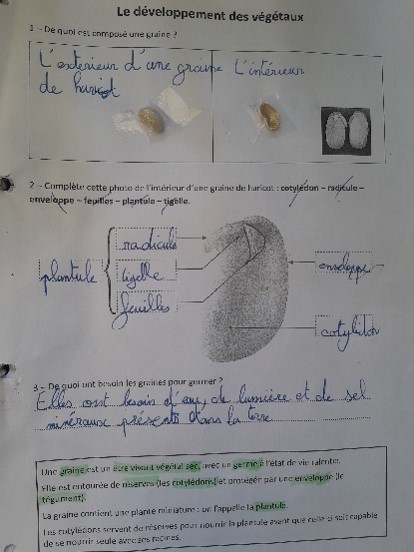 Le développement des végétaux
1 - De quoi est composé une graine ?
L'extérieur d'une graine L'intérieur
de haricot
2 - Complète cette photo de l'intérieur d'une graine de haricot : cotylédon – radicule –
enveloppe – feuilles – plantule – tigelle.
radicule
plantule
tigelle
enveloppe
feuilles
cotylédon
3 - De quoi ont besoin les graines pour germer ?
Elles ont besoin d'eau, de lumière et de sel
minéraux présents dans la terre
Une graine est un être vivant végétal sec, avec un germe à l'état de vie ralentie.
Elle est entourée de réserves (les cotylédons) et protégée par une enveloppe (le
tégument).
La graine contient une plante miniature : on l'appelle la plantule.
Les cotylédons servent de réserves pour nourrir la plantule avant que celle-ci soit capable
de se nourrir seule avec ses racines.